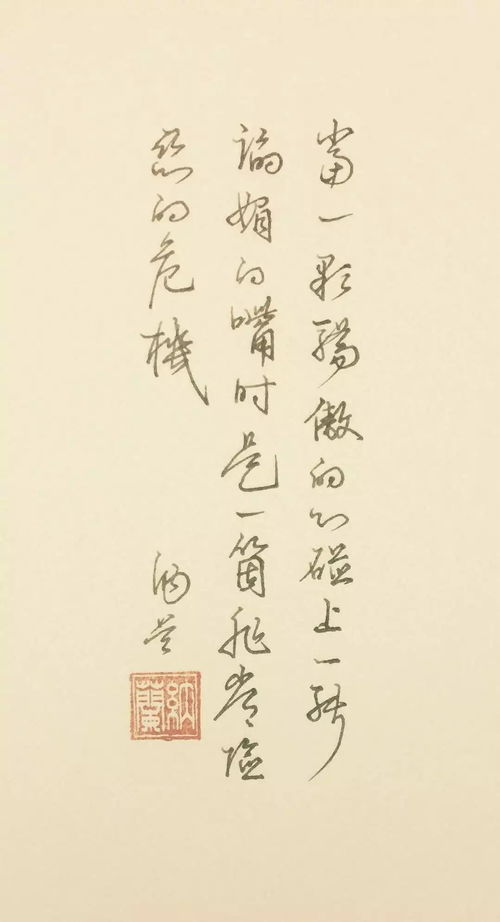 當一顆驕傲的心碰上一張
諂媚的嘴时是一箇非常險
惡的危機
納蘭